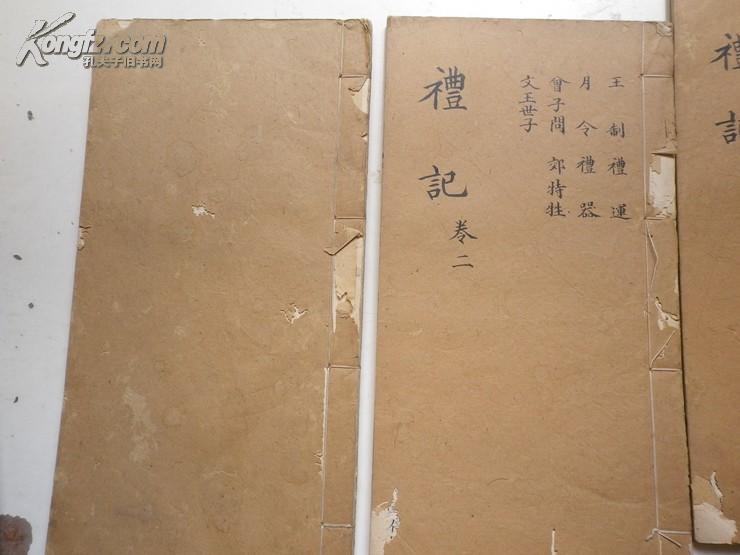 Kongfz.com
孔夫子旧书网
王制 禮運
月令 禮器
曾子問 郊特牲
文王世子
禮記 卷二
禮記